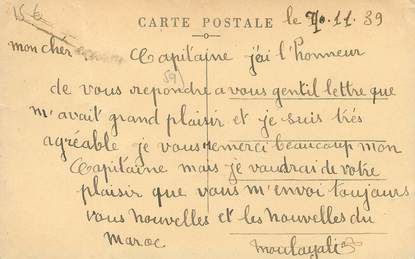 CARTE POSTALE le 70.11.39
mon cher Capitaine j'ai l'honneur
de vous repondre a vous gentil lettre que
m'avait grand plaisir et je suis trés
agréable je vous remerci beaucoup mon
Capitaine mais je vaudrai de votre
plaisir que vous m'envoi toujours
vous nouvelles et les nouvelles du
maroc moulayali